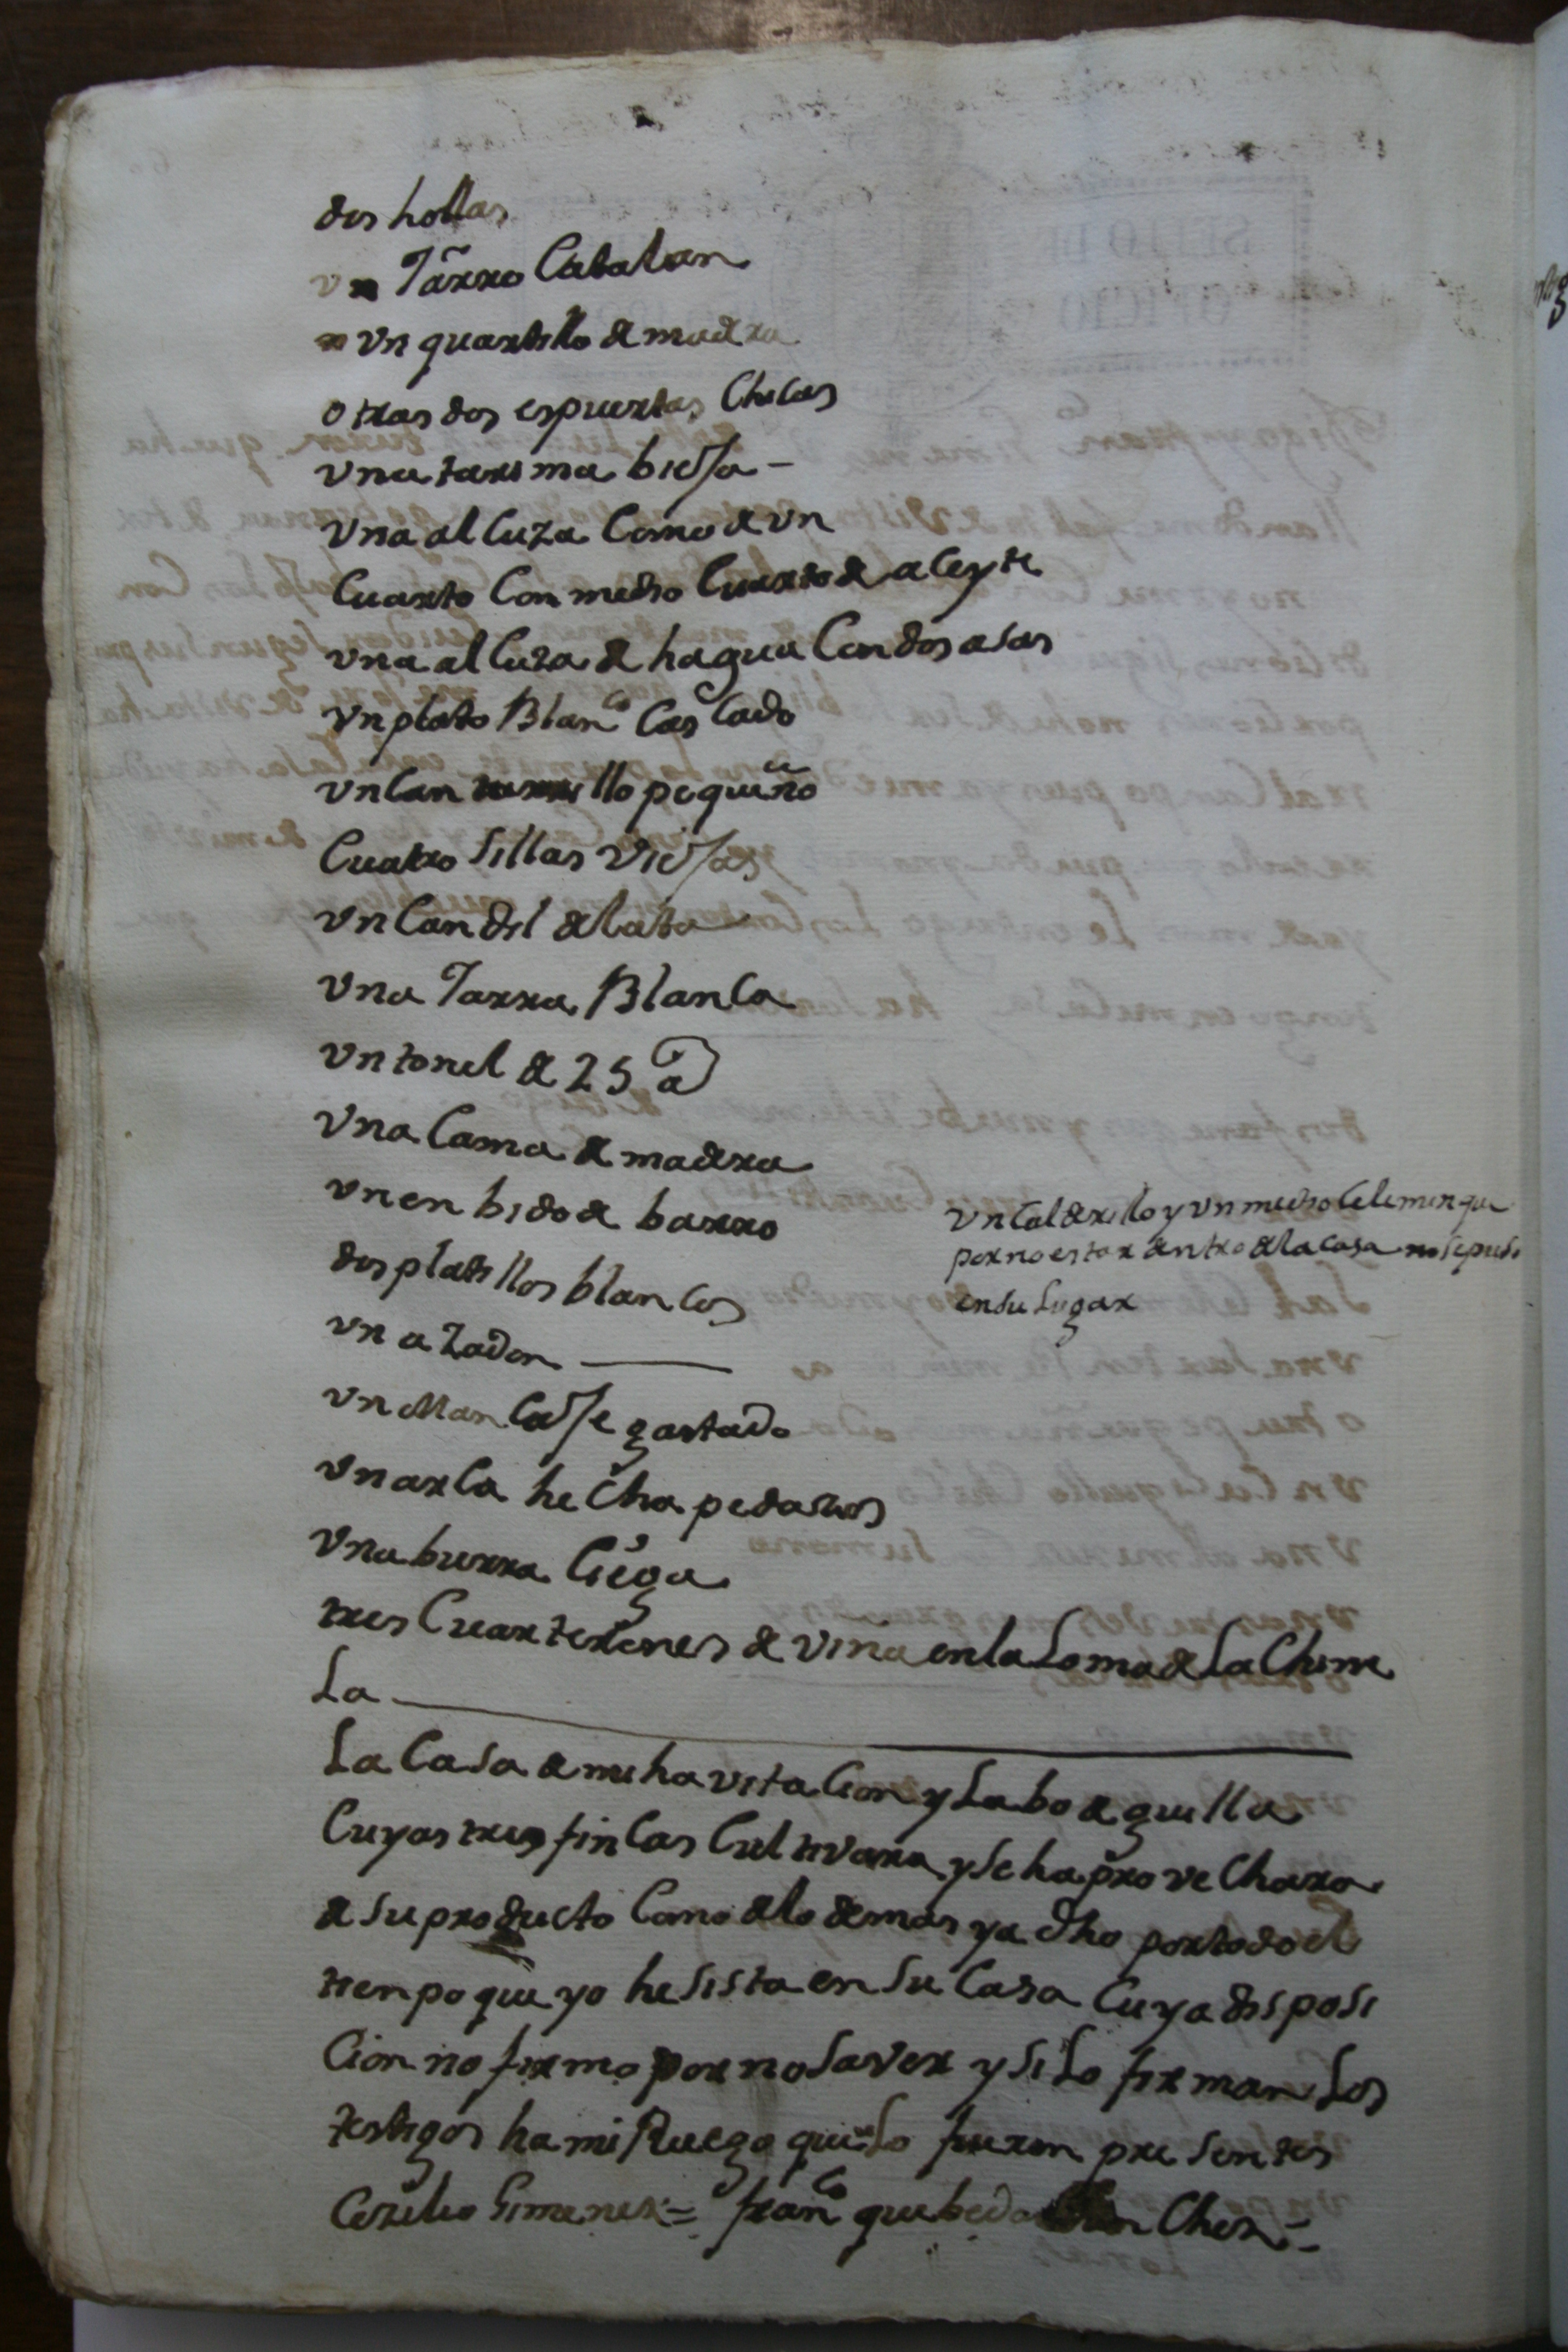 dos hollas
vn Tarro Catalan
vn quartillo de madera
otras dos espuertas Chicas
vna tarima biexa -
vna alcuza Como de vn
Cuarto Con medio Cuarto de aceyte
vna alcuza de hagua Con dos asas
vn plato Blanco Cascado
vn Can llo pequeño
Cuatro Sillas viexas
vn Candil de lata
vna Jarra Blanca
vn tonel de 25 a
vna Cama de madera
vn enbido de barro
dos platillos blancos
vn azadon
vn Mancaxe gastado
vn arca hecha pedasos
vna burra Ciega
tres Cuarterones de viña en la Loma de La Chime
La
vn Calderillo y vn medio Celemin que
por no estar dentro de la casa no se puso
en su Lugar
La Casa de mi havitacion y La bodeguilla
Cuyas tres fincas Cultivara y se haprovechara
de su producto Como de lo demas ya dho por todo el
tienpo que yo hesista en su Casa Cuya disposi
Cion no firmo por no Saver y si Lo firman Los
testigos ha mi Ruego que Lo fueron presentes
Cerilio Gimenez = Franco quebedo Chez =